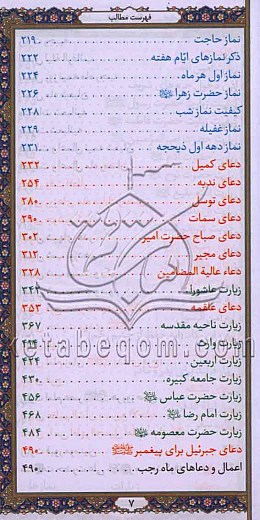 فهرست مطالب
نماز حاجت ۲۱۹
ذکر نمازهای ایّام هفته ۲۲۲
نماز اول هر ماه ۲۲۴
نماز حضرت زهرا ۲۲۶
کیفیت نماز شب ۲۲۸
نماز غفیله ۲۲۹
نماز دهه اول ذیحجه ۲۳۱
دعای کمیل ۲۳۲
دعای ندبه ۲۵۴
دعای توسل ۲۸۰
دعای سمات ۲۹۰
دعای صباح حضرت امیر ۳۰۲
دعای مجیر ۳۱۲
دعاء عالیة المضامین ۳۲۸
زیارت عاشورا
دعای علقمه ۳۵۳
زیارت ناحیه مقدسه ۳۶۷
زیارت وارث
زیارت اربعین ۴۲۴
زیارت جامعه کبیره ۴۳۰
زیارت حضرت عباس ۴۵۶
زیارت امام رضا ۴۶۸
زیارت حضرت معصومه ۴۸۴
دعای جبرئیل برای پیغمبر ۴۹۰
اعمال و دعاهای ماه رجب ۴۹۰
۷
ketabeqom.com